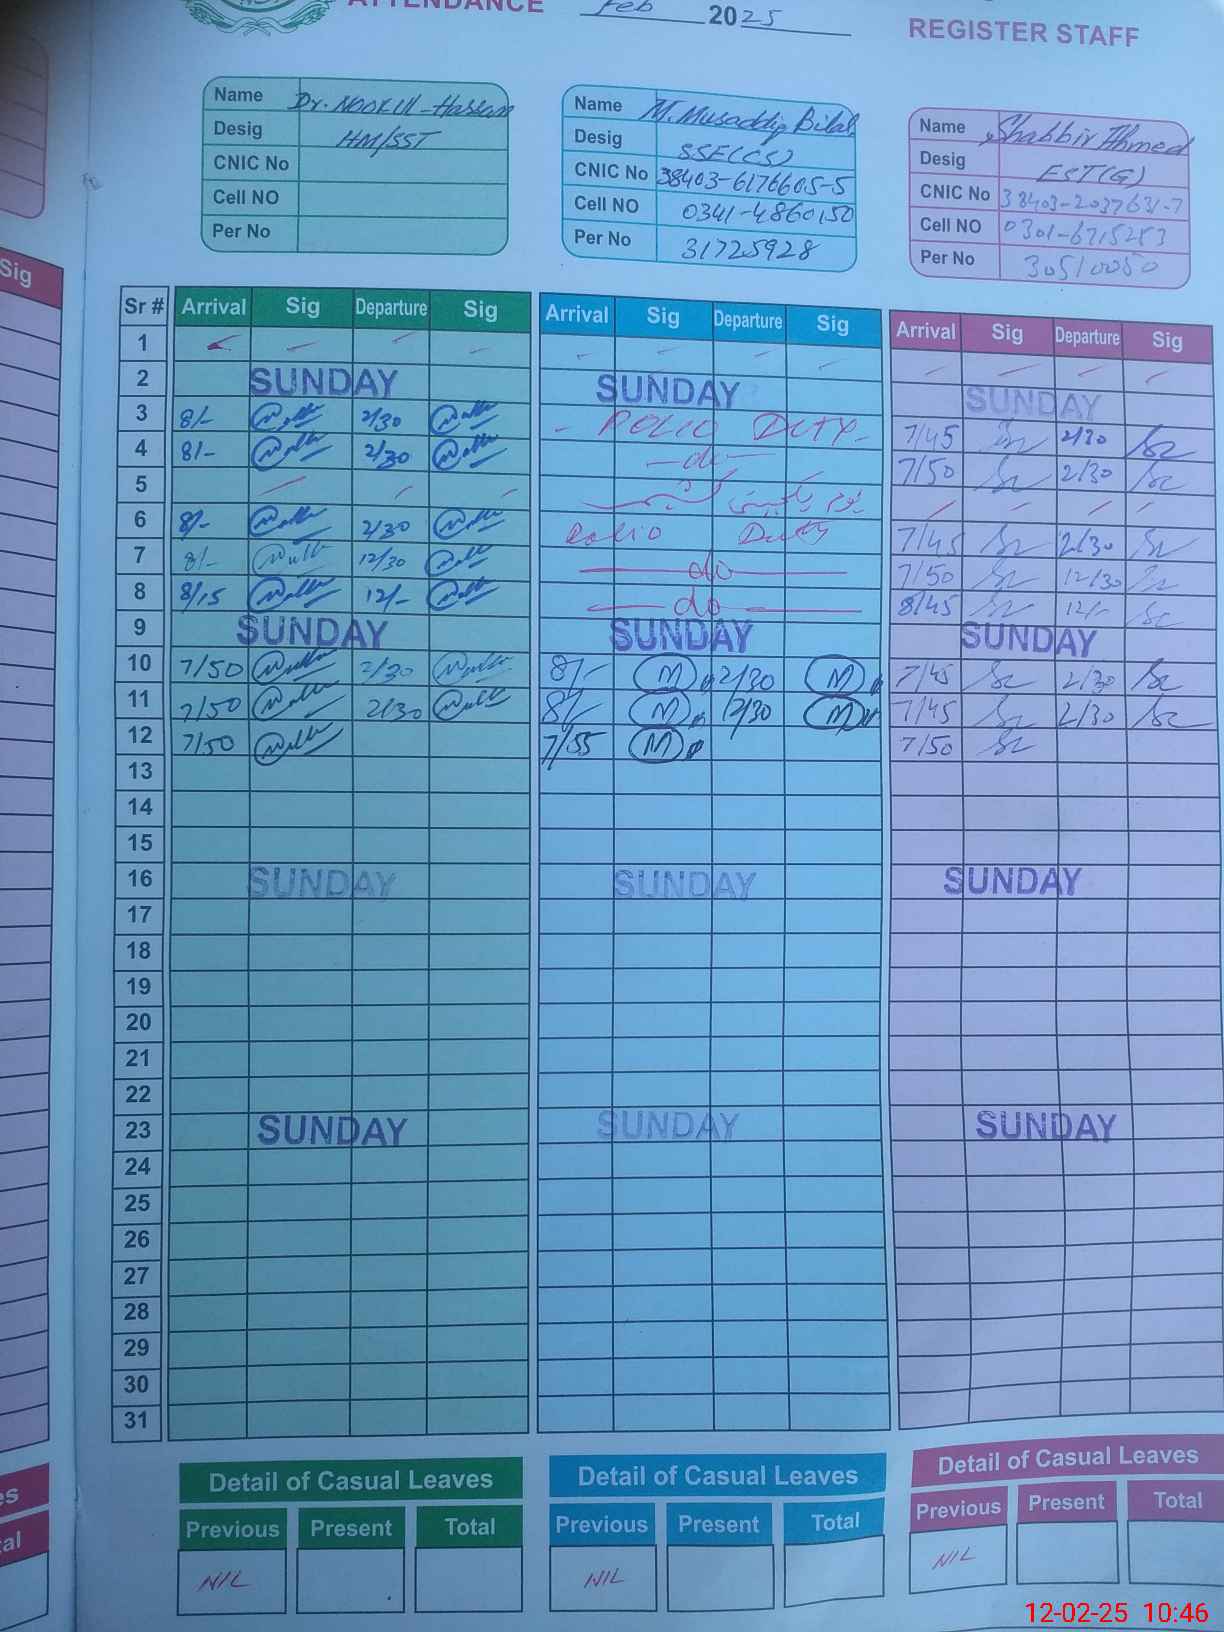 ATTENDANCE Feb 2025 REGISTER STAFF
Name Dr. Noor Ul-Hassan
Desig HM/SST
CNIC No
Cell NO
Per No
Name M. Musaddiq Bilal
Desig SSE(CS)
CNIC No 38403-6176605-5
Cell NO 0341-4860150
Per No 31725928
Name Shabbir Ahmed
Desig EST(G)
CNIC No 38403-2037631-7
Cell NO 0301-6715253
Per No 30510050
Sig
Sr # Arrival Sig Departure Sig Arrival Sig Departure Sig Arrival Sig Departure Sig
1
2 SUNDAY SUNDAY SUNDAY
3 8/- 2/30 - POLIO DUTY - 7/45 2/30
4 8/- 2/30 -do- 7/50 2/30
5 یوم یکجہتی کشمیر
6 8/- 2/30 Polio Duty 7/45 2/30
7 8/- 12/30 do 7/50 12/30
8 8/15 12/- do 8/45 12/-
9 SUNDAY SUNDAY SUNDAY
10 7/50 2/30 8/- M 2/30 M 7/45 2/30
11 7/50 2/30 8/- M 2/30 M 7/45 2/30
12 7/50 7/55 M 7/50
13
14
15
16 SUNDAY SUNDAY SUNDAY
17
18
19
20
21
22
23 SUNDAY SUNDAY SUNDAY
24
25
26
27
28
29
30
31
Detail of Casual Leaves Detail of Casual Leaves Detail of Casual Leaves
Previous Present Total Previous Present Total Previous Present Total
NIL NIL NIL
12-02-25 10:46